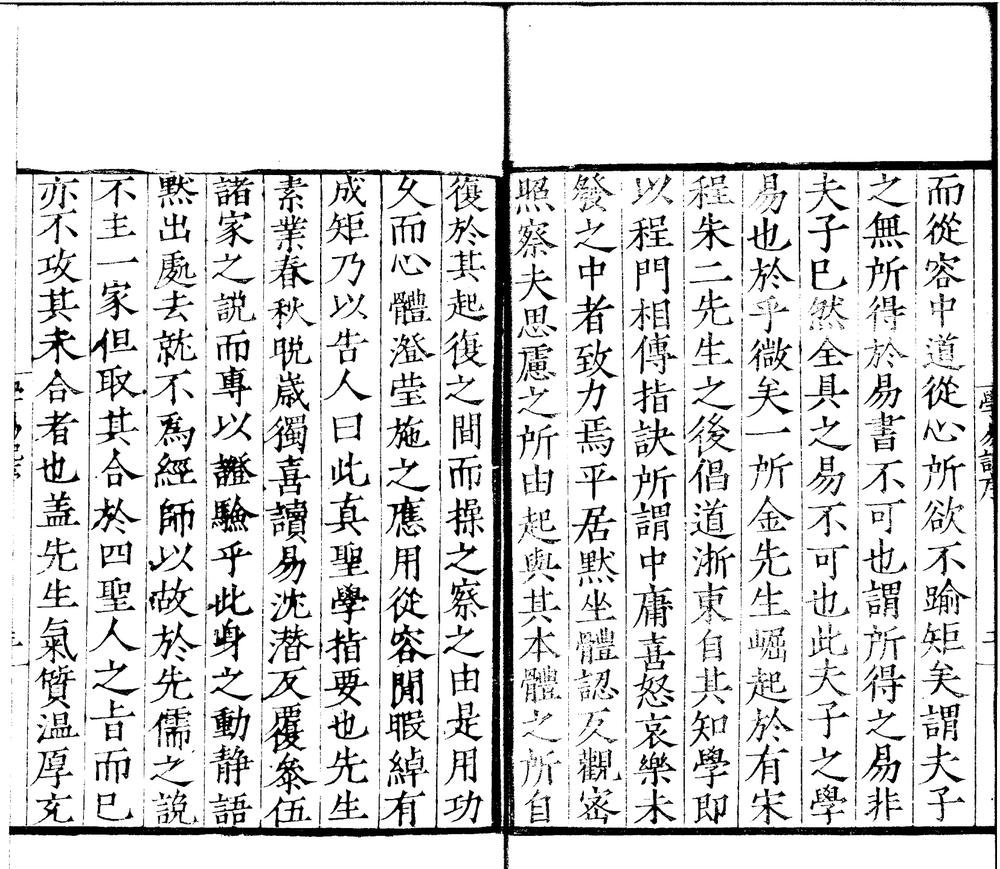 而從容中道從心所欲不踰矩矣謂夫子
之無所得於易書不可也謂所得之易非
夫子已然全具之易不可也此夫子之學
易也於乎微矣一所金先生崛起於有宋
程朱二先生之後倡道浙東自其知學即
以程門相傳指訣所謂中庸喜怒哀樂未
發之中者致力焉平居默坐體認反觀密
照察夫思慮之所由起與其本體之所自
復於其起復之間而操之察之由是用功
久而心體澄瑩施之應用從容閒暇綽有
成矩乃以告人曰此真聖學指要也先生
素業春秋晚歲獨喜讀易沈潛反覆叅伍
諸家之説而專以證驗乎此身之動静語
默出處去就不爲經師以故於先儒之説
不主一家但取其合於四聖人之㫖而已
亦不攻其未合者也盖先生氣質温厚充